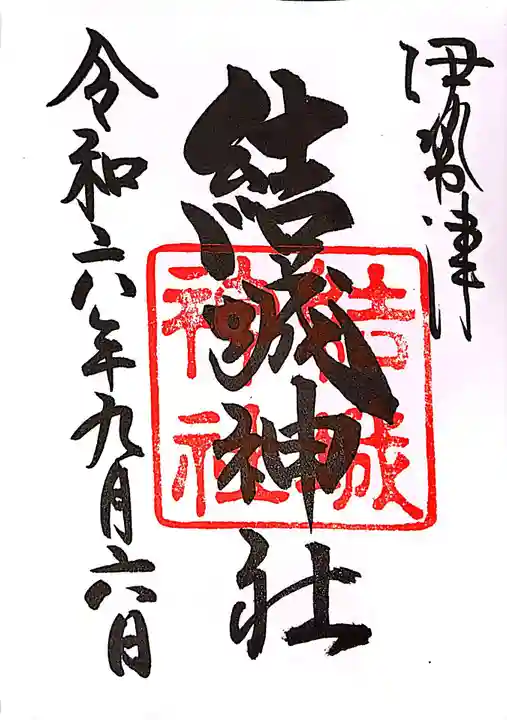 伊勢津
結城神社
結城神社
令和六年九月六日